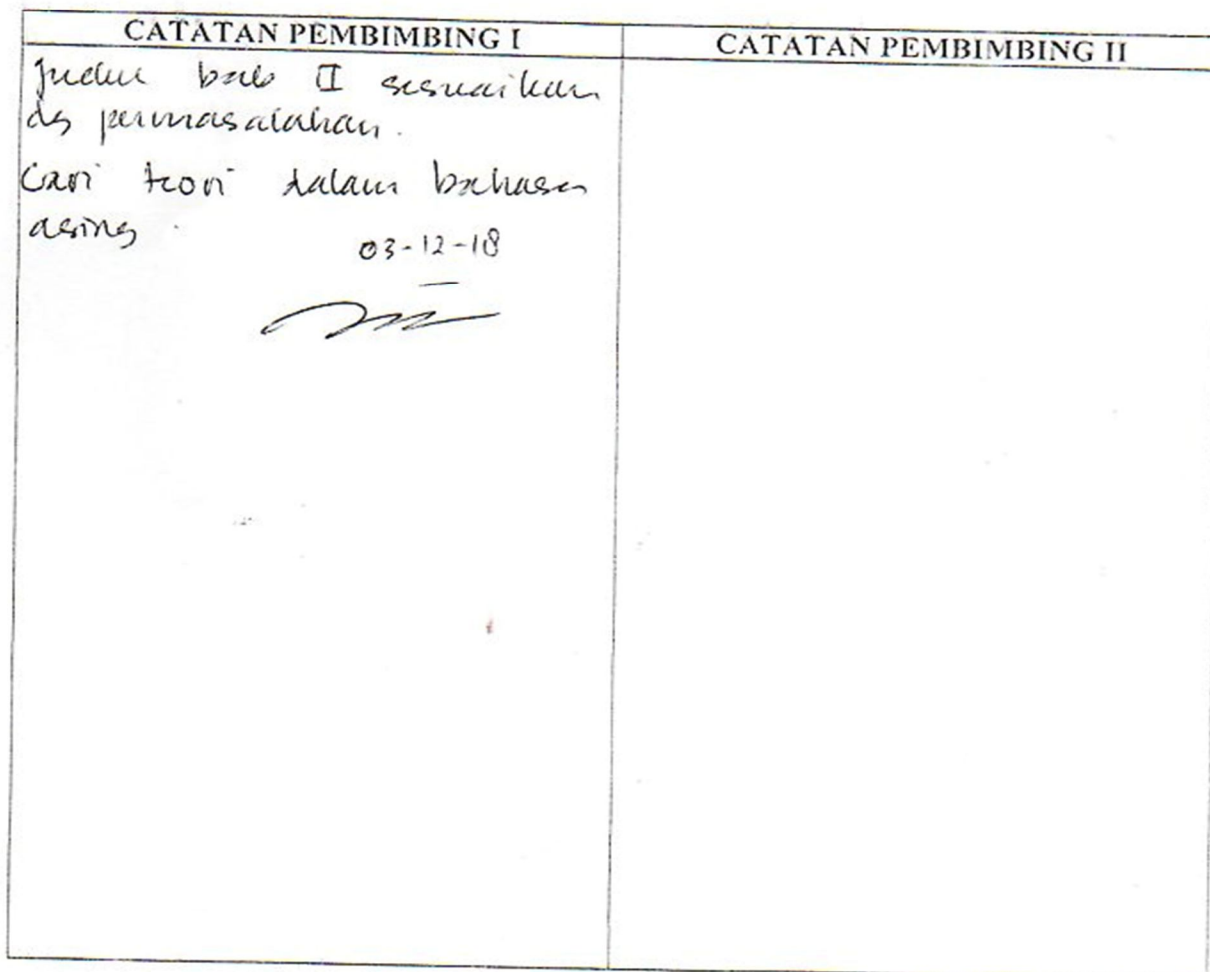 CATATAN PEMBIMBING I
CATATAN PEMBIMBING II
Judul bab II sesuaikan
dg permasalahan.
Cari teori dalam bahasa
asing.
03-12-18